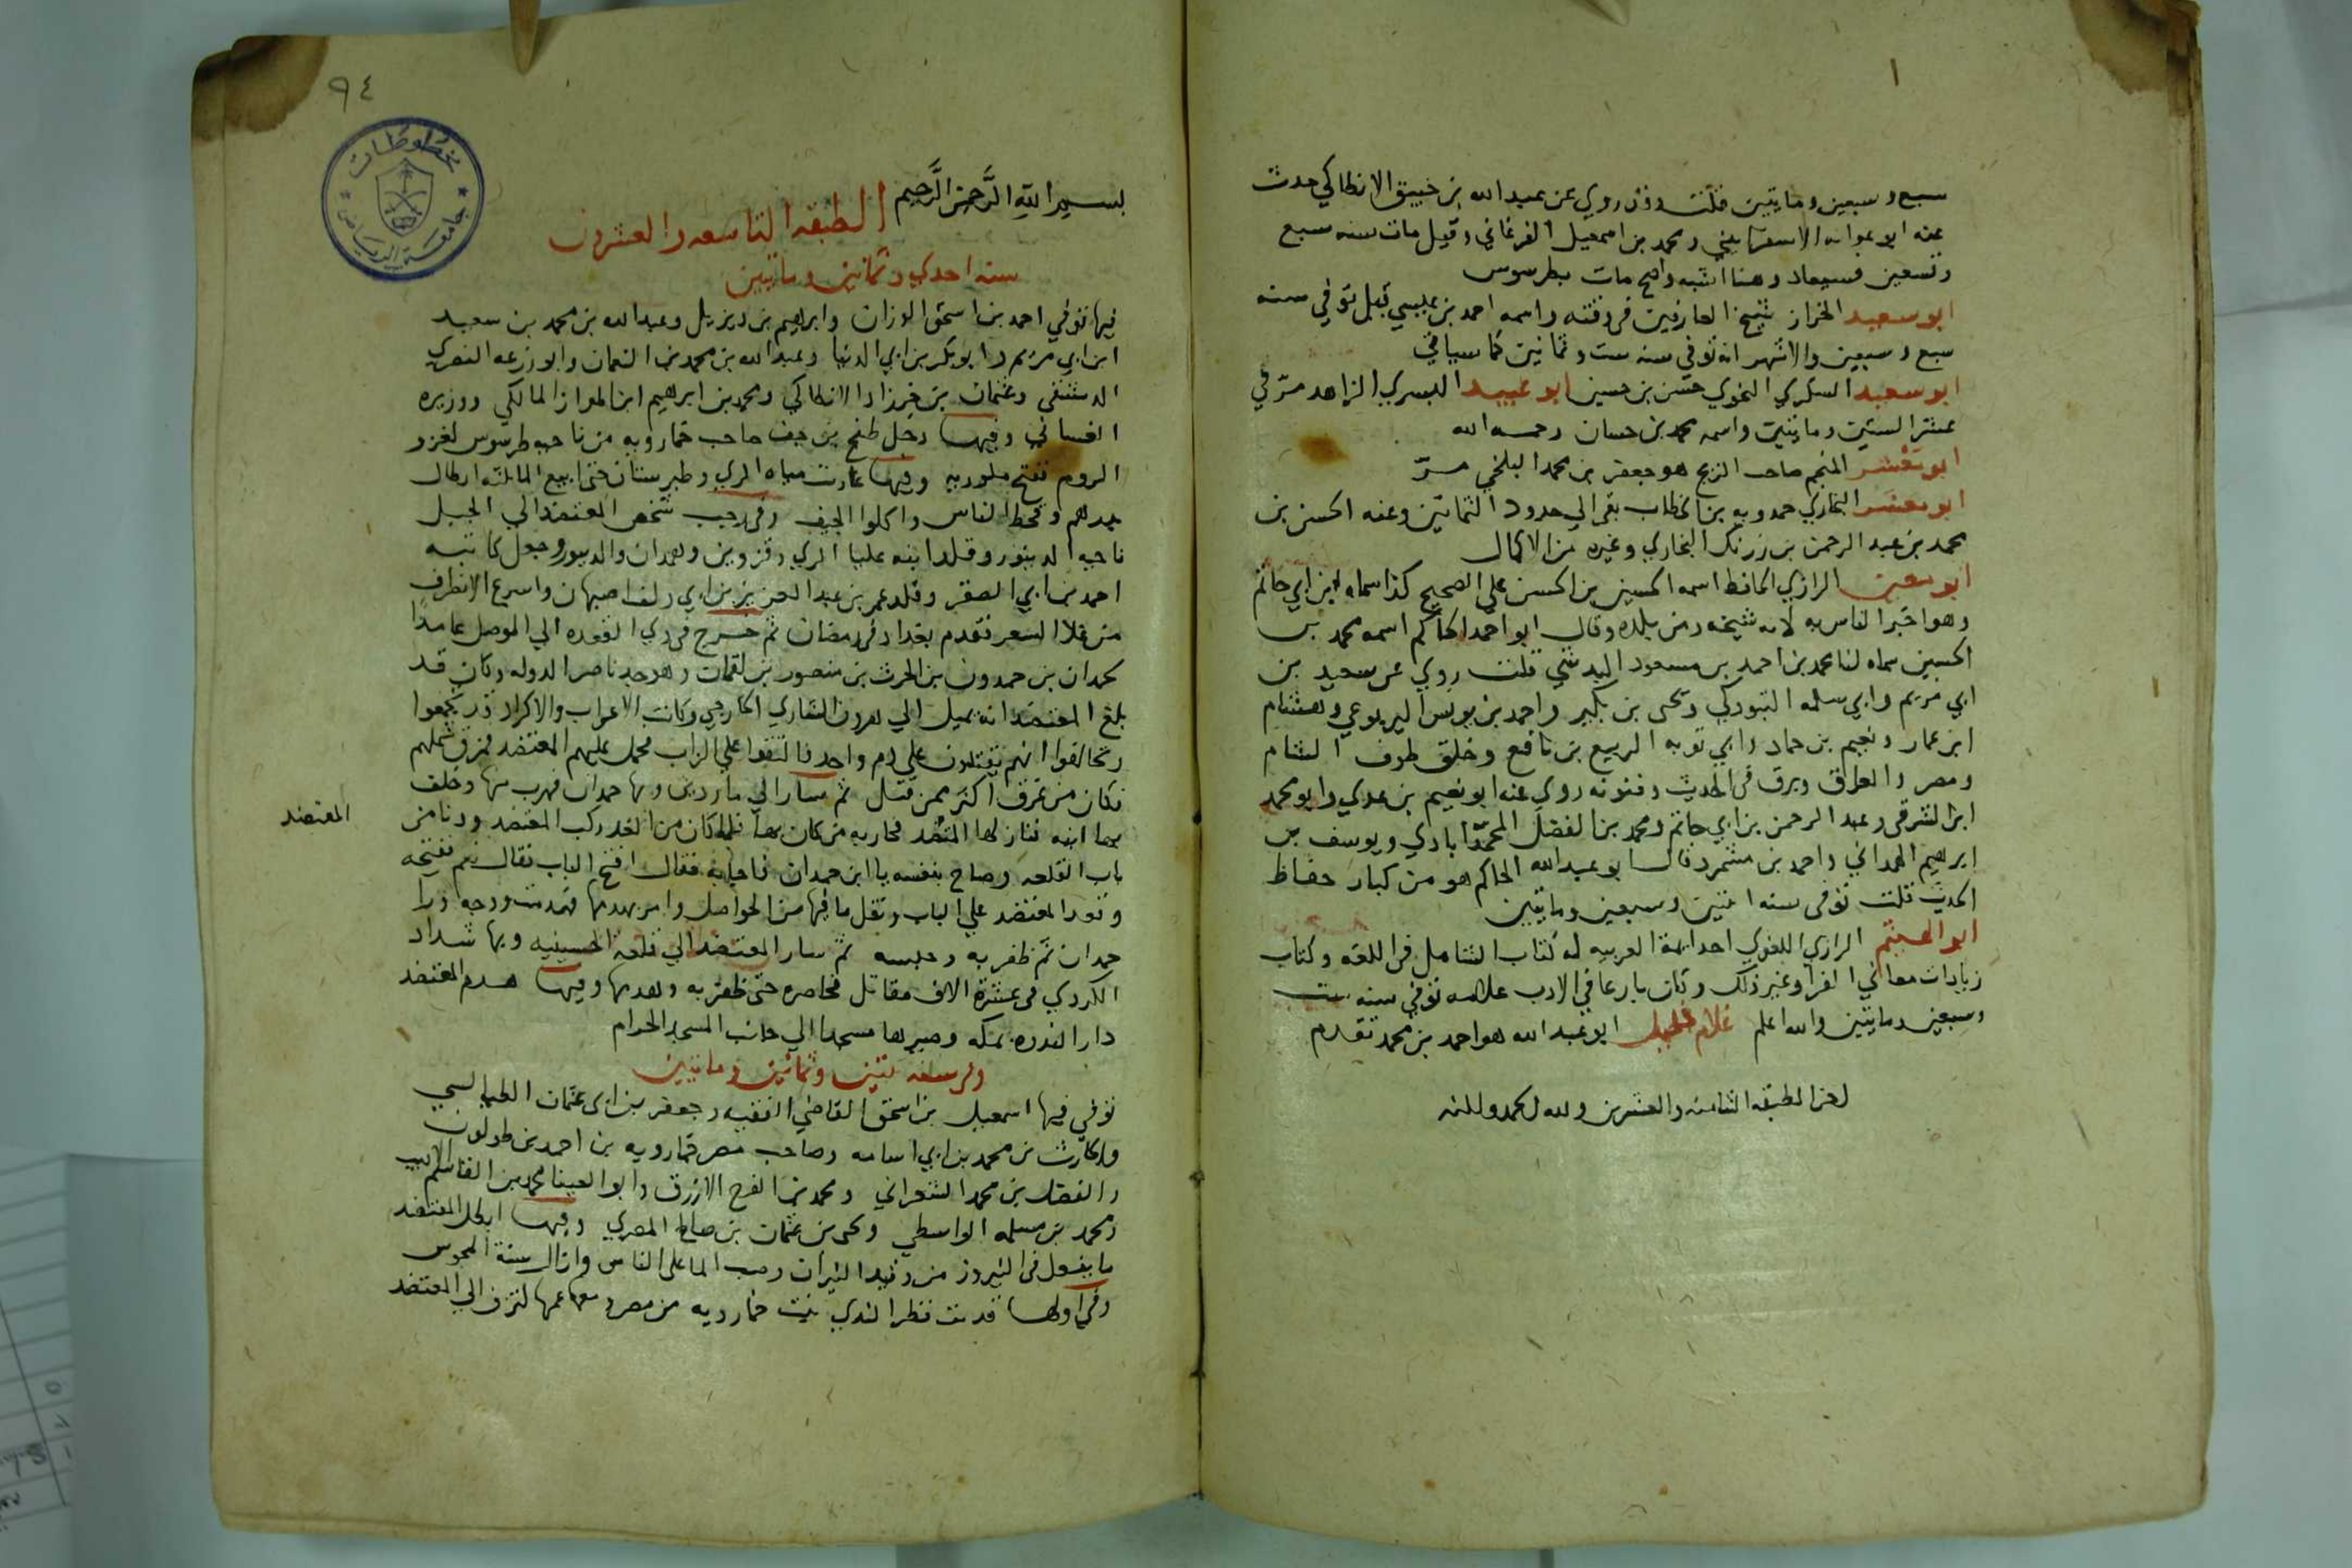 سبع وسبعين ومايتين قلت وقد روي عن عبد الله بن خبيق الانطاكي حدث
عنه ابو عوانه الاسفرايني ومحمد بن اسمعيل الفرغاني وقيل مات سنه سبع
وتسعين فسيعاد وهنا اشبه واصح مات بطرسوس
ابو سعيد الخراز شيخ العارفين في وقته واسمه احمد بن عيسي قيل توفي سنه
سبع وسبعين والاشهر انه توفي سنه ست وثمانين كما سياتي
ابو سعيد السكري النحوي حسن بن حسين ابو عبيد البسري الزاهد مر في
عشر الستين ومايتين واسمه محمد بن حسان رحمه الله
ابو معشر المنجم صاحب الزيج هو جعفر بن محمد البلخي مر
ابو معشر البخاري حمدويه بن الخطاب بقي الي حدود الثمانين وعنه الحسن بن
محمد بن عبد الرحمن بن زرنك البخاري وغيره من الاكمال
ابو معين الرازي الحافظ اسمه الحسين بن الحسن علي الصحيح كذا سماه ابن ابي حاتم
وهو اخبر الناس به لانه شيخه ومن بلده وقال ابو احمد الحاكم اسمه محمد بن
الحسين سماه لنا محمد بن احمد بن مسعود البدشي قلت روي عن سعيد بن
ابي مريم وابي سلمه التبوذكي ويحيى بن بكير واحمد بن يونس اليربوعي وهشام
ابن عمار ونعيم بن حماد وابي توبه الربيع بن نافع وخلق طوف الشام
ومصر والعراق وبرق في الحديث وفنونه روي عنه ابو نعيم بن عدي وابو محمد
ابن الشرقي وعبد الرحمن بن ابي حاتم ومحمد بن الفضل المحمداباذي ويوسف بن
ابرهيم الهمداني واحمد بن مشمرد قال ابو عبد الله الحاكم هو من كبار حفاظ
الحديث قلت توفي سنه اثنتين وسبعين ومايتين
ابو الهيثم الرازي اللغوي احد ايمة العربيه له كتاب الشامل في اللغه وكتاب
زيادات معاني الفرا وغير ذلك وكان بارعا في الادب علامه توفي سنه ست
وسبعين ومايتين والله اعلم غلام خليل ابو عبد الله هو احمد بن محمد تقدم
اخر الطبقه الثامنه والعشرين ولله الحمد والمنه
٩٤
مخطوطات
جامعة الرياض
بسم الله الرحمن الرحيم الطبقه التاسعه والعشرون
سنه احدي وثمانين ومايتين
فيها توفي احمد بن اسحق الوزان وابرهيم بن ديزيل وعبد الله بن محمد بن سعيد
ابن ابي مريم وابو بكر بن ابي الدنيا وعبد الله بن محمد بن النعمان وابو زرعه النصري
الدمشقي وعثمان بن خرزاذ الانطاكي ومحمد بن ابرهيم ابن المواز المالكي ووزيره
الغساني وفيها دخل طغج بن جف صاحب خمارويه من ناحيه طرسوس لغزو
الروم ففتح ملوريه وفيها غارت مياه الري وطبرستان حتى ابيع الما ثلثه ارطال
بدرهم وقحط الناس واكلوا الجيف وفي رجب شخص المعتضد الي الجبل
ناحيه الدينور وقلد ابنه عليا الري وقزوين وهمدان والدينور وجعل كاتبه
احمد بن ابي الصقر وقلد عمر بن عبد العزيز بن ابي دلف اصبهان واسرع الانصراف
من غلا السعر فقدم بغداد في رمضان ثم خرج في ذي القعده الي الموصل عامدا
لحمدان بن حمدون بن الحرث بن منصور بن لقمان وهو جد ناصر الدوله وكان قد
بلغ المعتضد انه يميل الي هرون الشاري الخارجي وكانت الاعراب والاكراد قد تجمعوا
وتحالفوا انهم يقتلون علي دم واحد فالتقوا علي الزاب فحمل عليهم المعتضد فمزق شملهم
فكان من غرق اكثر ممن قتل ثم سار الي ماردين وبها حمدان فهرب منها وخلف
بها ابنه فنازلها المعتضد فحاربه من كان بها فلما كان من الغد ركب المعتضد ودنا من
المعتضد
باب القلعه وصاح بنفسه يا ابن حمدان فاجابه فقال افتح الباب فقال نعم ففتحه
وقعد المعتضد علي الباب ونقل ما فيها من الحواصل وامر بهدمها فهدمت ووجه ورا
حمدان ثم ظفر به وحبسه ثم سار المعتضد الي قلعه الحسينيه وبها شداد
الكردي في عشرة الاف مقاتل فحاصره حتى ظفر به وهدمها وفيها هدم المعتضد
دار الندوه بمكه وصيرها مسجدا الي جانب المسجد الحرام
وفي سنه ثنتين وثمانين ومايتين
توفي فيها اسمعيل بن اسحق القاضي الفقيه وجعفر بن ابي عثمان الطيالسي
والحارث بن محمد بن ابي اسامه وصاحب مصر خمارويه بن احمد بن طولون
والفضل بن محمد الشعراني ومحمد بن الفرج الازرق وابو العينا محمد بن القاسم الاديب
ومحمد بن مسلمه الواسطي ويحيى بن عثمان بن صالح المصري وفيها ابطل المعتضد
ما يفعل في النيروز من وقيد النيران وصب الما علي الناس وازال سنة المجوس
وفي اولها قدمت قطر الندي بنت خمارويه من مصر ومعها عمها لتزف الي المعتضد